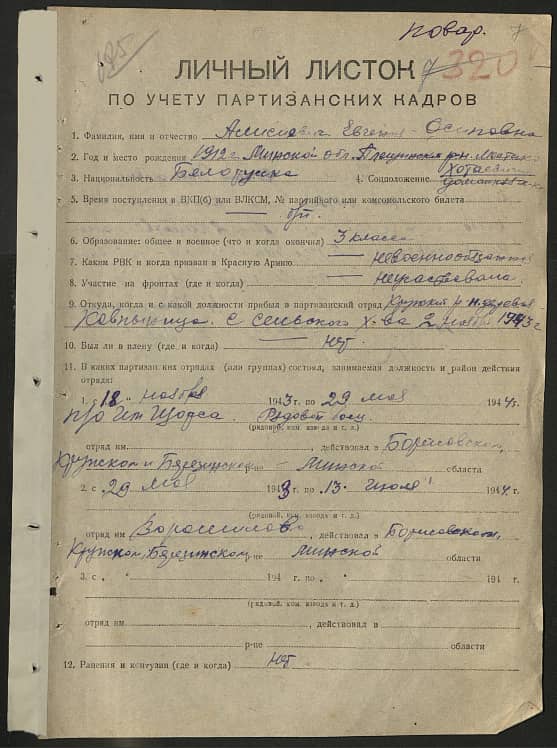 повар.
685
320
ЛИЧНЫЙ ЛИСТОК
ПО УЧЕТУ ПАРТИЗАНСКИХ КАДРОВ
1. Фамилия, имя и отчество Евгения Осиповна
2. Год и место рождения 1912 г. Минской обл. Плещинский р-н.
3. Национальность Белоруска 4. Соцположение домохозяйка
5. Время поступления в ВКП(б) или ВЛКСМ, № партийного или комсомольского билета
б/п.
6. Образование: общее и военное (что и когда окончил) 3 класса
7. Каким РВК и когда призван в Красную Армию невоеннообязанная
8. Участие на фронтах (где и когда) неучаствовала.
9. Откуда, когда и с какой должности прибыл в партизанский отряд Крупский р-н деревня
с сельского х-ва 2 ноября 1943 г
10. Был ли в плену (где и когда) Нет
11. В каких партизанских отрядах (или группах) состоял, занимаемая должность и район действия
отряда:
1. с 18 „ ноября 1943 г. по 29 мая 1944 г.
п/о им Щорса. Рядовой боец.
(рядовой, ком. взвода и т. д.)
отряд им. , действовал в Борисовском,
Крупском и Березинском р-не Минской области
2. с 29 мая 1943 г. по 13 июля 1944 г.
(рядовой, ком. взвода и т. д.)
отряд им Ворошилова , действовал в Борисовском,
Крупском, Березинском р-не Минской области
3. с „ 194 г. по „ 194 г.
(рядовой, ком. взвода и т. д.)
отряд им. , действовал в
р-не области
12. Ранения и контузии (где и когда) Нет